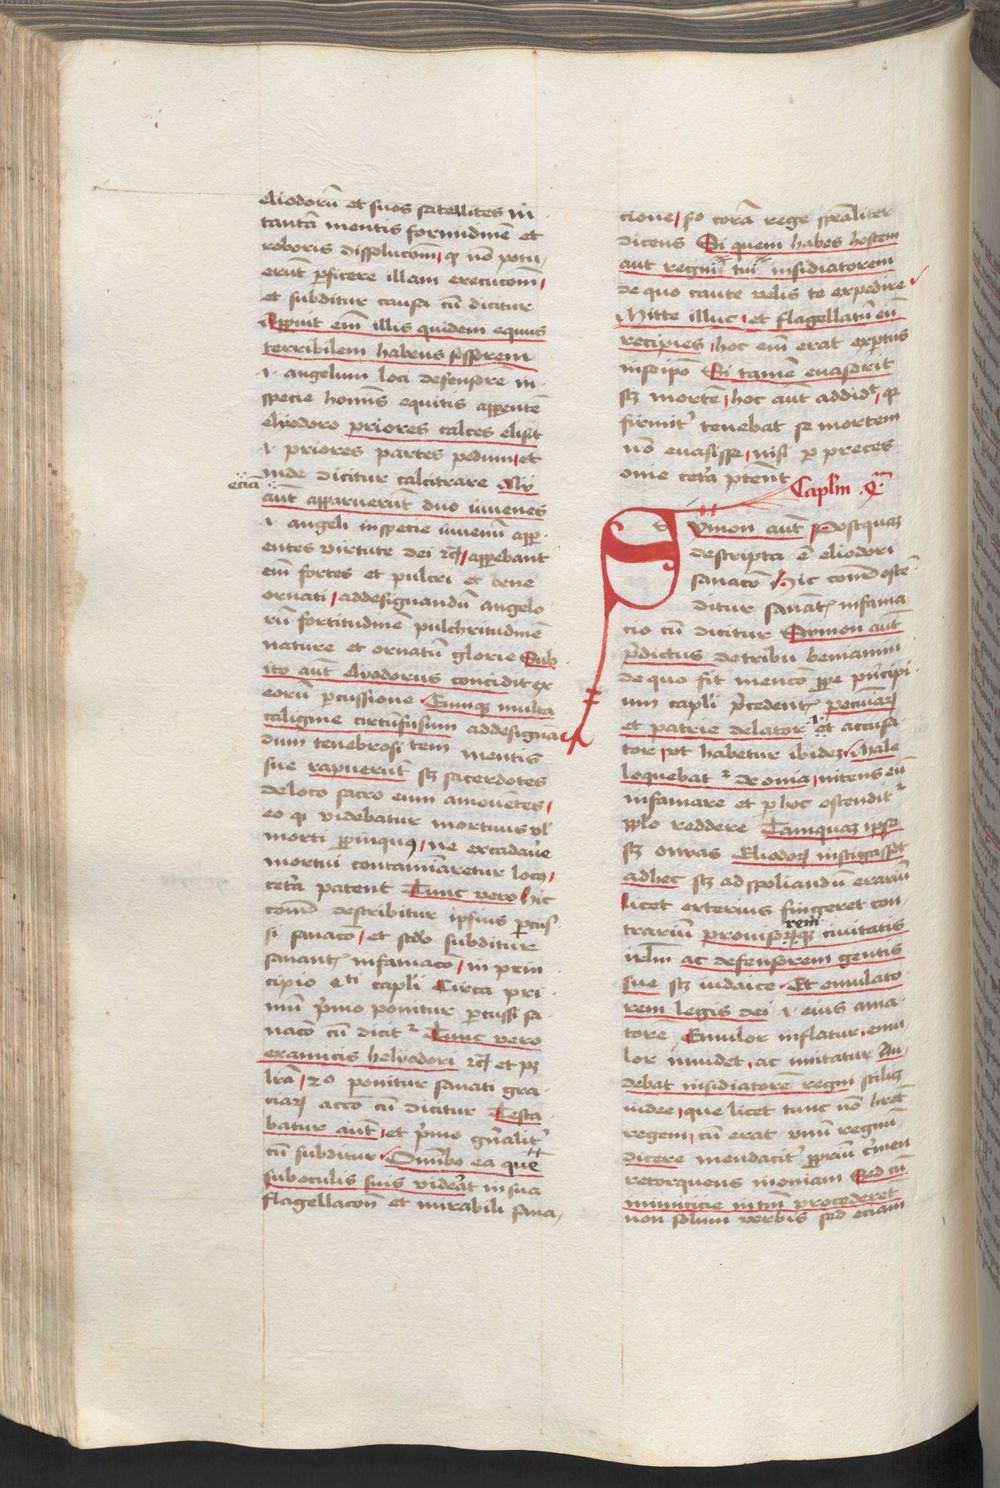 eliodorū et suos satellites in
tantā mentis formidinē et
roboris dissolucoīm, q̄ nō potu,
erūt ꝑficere illam execucoīm,
et subditur causa cū dicitur
Apparuit eīm illis quidem equus
terribilem habens sessorem
.i. angelum loci defensorē in
specie hominis equitis apparentē
eliodoro priores calces elisit
.i. priores partes pedum, et
inde dicitur calcitrare Alij
ecia
aūt apparuerūt duo iuuenes
.i. angeli in specie iuuenū app
entes virtute dei rc̄, apparebant
eīm fortes et pulcri et bene
ornati, ad designandū angelo
rū fortitudinē pulchritudinē
nature et ornatū glorie Sub
ito aūt elyodorus concidit ex
eorū ꝑcussione. Eumqꝫ multa
caligine circūfusum ad designa
dum tenebrositatem mentis
sue rapuerūt sꝫ sacerdotes
de loco sacro eum amouētes,
eo qꝫ videbatur mortuus vl
morti ꝓpinquus, ne ex cadauere
mortui contaminaretur locus,
cetera patent Tunc vero hic
describitur ipsius ꝑcus
si sanaco, et scdo subditur
sanantis infamaco, in prin
cipio capli Circa pri
mū pͥmo ponitur ꝑcussi sa
naco cū dicitͬ Tunc vero
ex amicis helyodori rc̄ et pꝫ
lrā, 2o ponitur sanati gra
ciarꝫ accō cū dicitur Testa
batur aūt, et pͥmo gn̄alitͬ
cū subditur. Omībꝫ ea que
sub oculis suis viderat in sua
flagellacoīm et mirabili sana,
cione, so corā rege spāliter
dicens Si quem habes hostem
aut regni tui insidiatorem
de quo caute velis te expedire
Mitte illuc, et flagellatū eū
recipies, hoc eīm erat exꝑtus
in seipo Si tamē euaserit
sꝫ mortē, hoc aūt addidit, qꝫ
firmitͬ tenebat se mortem
nō euasisse, nisi ꝑ preces
onie cetera ptent
Caplm .4m
Symon aūt Postquaꝫ
descripta ē eliodori
sanacō, Hic oste
ditur sanantis infama
cio cū dicitur Symon aūt
p̄dictus de tribu beniamin
de quo fit mencō ꝓpe pͥncipi
um capli p̄cedentis pecuniarꝫ
et patrie delator et accusa
tor, vt habetur ibideꝫ, Male
loquebatͬ de onia, nitens eū
infamare et ꝑ hoc ostenditͬ
pplo reddere Tamquaꝫ ipse
sꝫ onyas Eliodorꝫ instigasset
ad hec sꝫ ad spoliandū erariū
licet exterius fingeret con
trariū prouisoremqꝫ ciuitatis
irlm ac defensorem gentis
sue sꝫ iudaice. Et emulato
rem legis dei .i. eius ama
tore Emulor inflatur, emu
lor inuidet, ac imitatur Au,
debat insidiatorē regni scilicꝫ
iudee, que licet tunc nō hr̄et
regem, tū erat vnū regnū
dicere mendacitͬ ꝓprium cͥmen
retorquens in oniam Sed cū
inimicicie in tm̄ procederēt
non solum verbis sed eciam